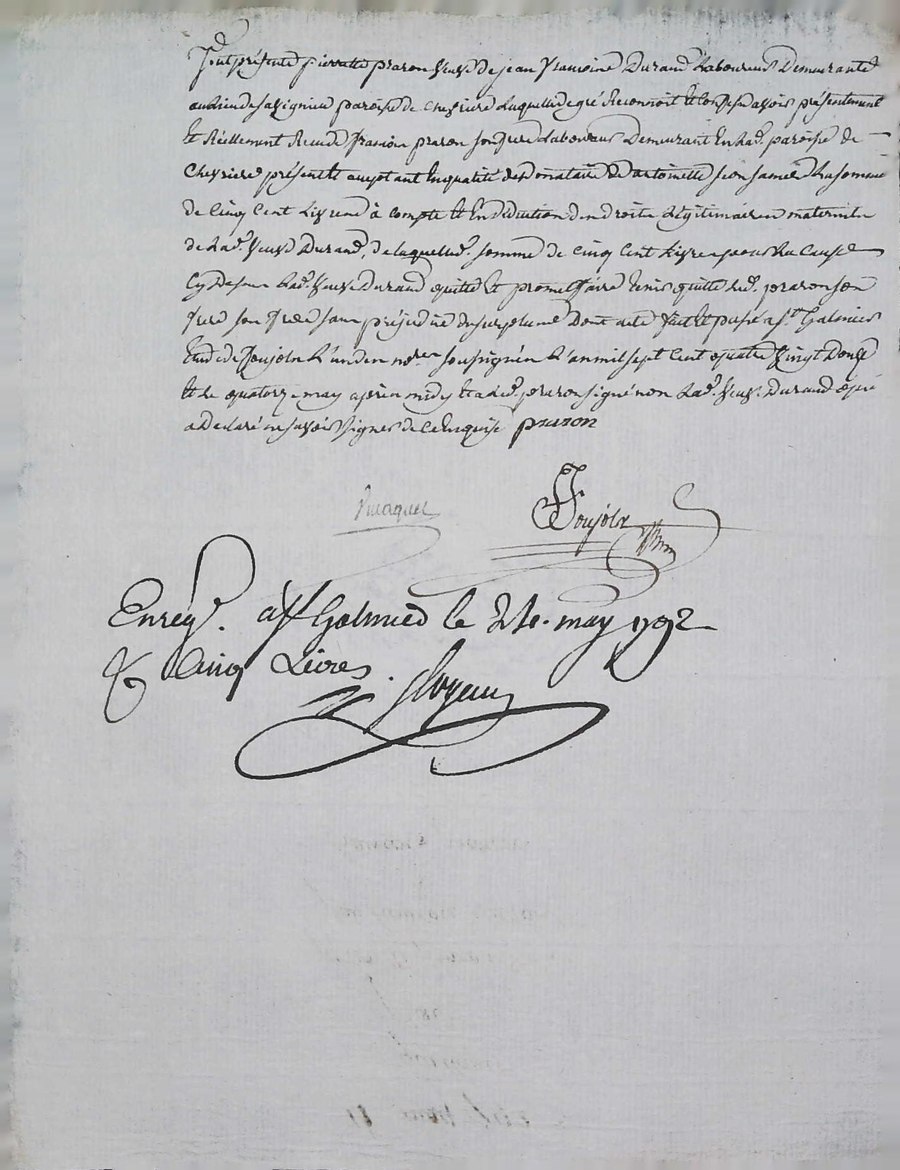 Fut présente pierrette praron veuve de jean françoise Durand Laboureur Demeurante
au lieu de savignieu paroisse de chevriere Laquelle de gré Reconnoit et Confesse avoir présentement
et Réellement Reçu de françoi praron son frere Laboureur Demeurant En lad. paroisse de
Chevriere présent et acceptant En qualité de donataire de antoinette sa La somme
de Cinq Cent Livres à compte et En déduction des droits Légitimaires maternels
de Lad. veuve Durand, de laquelle somme de Cinq Cent Livres pour La Cause
Cy dessus Lad. veuve Durand quitte et promet faire tenir quitte led. praron son
frere sans préjudice du surplus Dont acte fait et passé a St. Galmier
Etude de Poujolx L'un des nores soussignés L'an mil sept Cent quatre vingt Douze
et Le quatorze may après midy et a led. praron signé non Lad. veuve Durand qui
a Declaré ne savoir signer de Ce Enquise praron
Poujolx
Enreg. a St Galmier le 24. may 1792
R Cinq Livres.